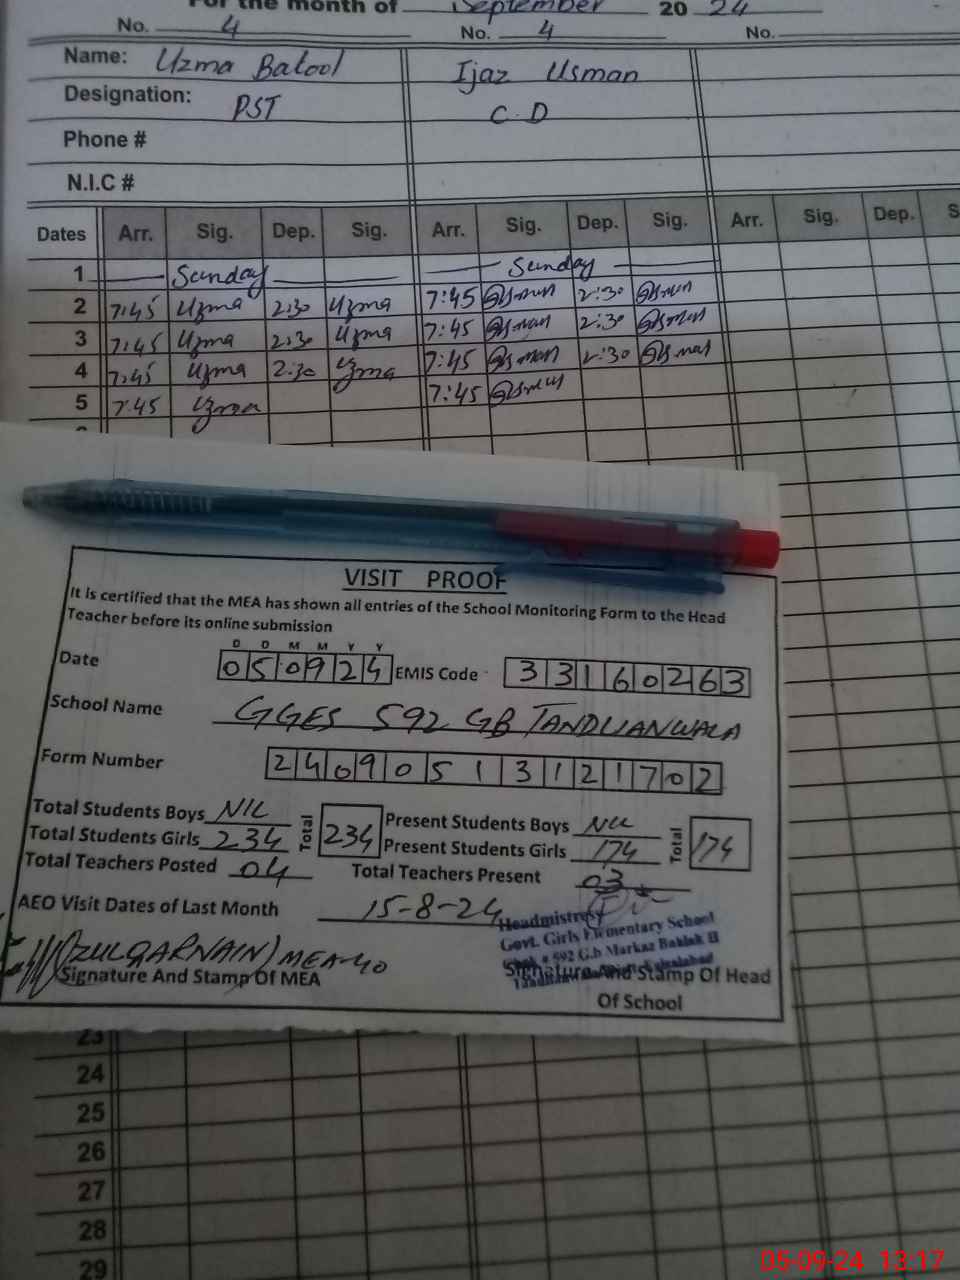 For the month of September 20 24
No. 4 No. 4 No.
Name: Uzma Batool Ijaz Usman
Designation: PST C.D
Phone #
N.I.C #
Dates Arr. Sig. Dep. Sig. Arr. Sig. Dep. Sig. Arr. Sig. Dep. S
1 Sunday Sunday
2 7:45 Uzma 2:30 Uzma 7:45 Usman 2:30 Usman
3 7:45 Uzma 2:30 Uzma 7:45 Usman 2:30 Usman
4 7:45 Uzma 2:30 Uzma 7:45 Usman 2:30 Usman
5 7:45 Uzma 7:45 Usman
VISIT PROOF
It is certified that the MEA has shown all entries of the School Monitoring Form to the Head
Teacher before its online submission
D D M M Y Y
Date 050924 EMIS Code 33160263
School Name GGES 592 GB TANDLIANWALA
Form Number 24090513121702
Total Students Boys NIL Total 234 Present Students Boys NIL Total 174
Total Students Girls 234 Present Students Girls 174
Total Teachers Posted 04 Total Teachers Present 03
AEO Visit Dates of Last Month 15-8-24
Headmistress
Govt. Girls Elementary School
# 592 G.b Markaz
(ZULQARNAIN) MEA-40
Signature And Stamp Of MEA Signature And Stamp Of Head
Of School
23
24
25
26
27
28
29
05-09-24 13:17